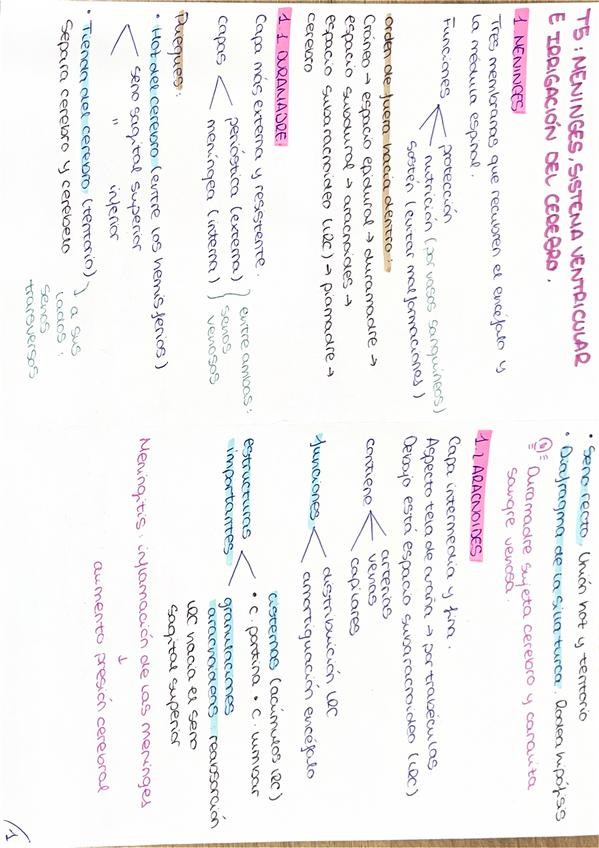 T5: MENINGES, SISTEMA VENTRICULAR
E IRRIGACIÓN DEL CEREBRO.
1 MENINGES
Tres membranas que recubren el encéfalo y
la médula espinal.
Funciones
protección
nutrición (por vasos sanguíneos)
sostén (evitar malformaciones)
orden de fuera hacia dentro:
Cráneo → espacio epidural → duramadre →
espacio subdural → aracnoides →
espacio subaracnoideo (LRC) → piamadre →
cerebro
1.1 DURAMADRE:
Capa más externa y resistente.
capas
perióstica (externa)
meníngea (interna)
entre ambas:
senos
venosos
Pliegues:
• Hoz del cerebro (entre los hemisferios)
seno sagital superior
" inferior
• Tienda del cerebro (tentorio)
Separa cerebro y cerebelo
a sus
lados:
senos
transversos
• Seno recto. Unión hoz y tentorio
• Diafragma de la silla turca. Rodea hipófisis
Duramadre sujeta cerebro y canaliza
sangre venosa.
1.2 ARACNOIDES
Capa intermedia y fina.
Aspecto tela de araña → por trabéculas
Debajo está espacio subaracnoideo (LRC)
contiene
arterias
venas
capilares
funciones
distribución LRC
amortiguación encéfalo
estructuras
importantes
cisternas (acúmulos LRC)
• C. pontina • C. lumbar
granulaciones
aracnoideas: reabsorción
LRC hacia el seno
sagital superior
Meningitis: inflamación de las meninges
↓
aumento presión cerebral
1